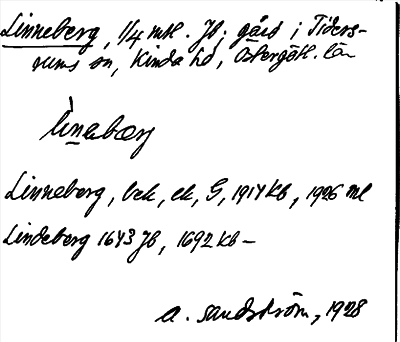 Linneberg, 1/4 mtl. Jb, gård i Tiders-
rums sn, Kinda hd, Östergötl. län
linebærg
Linneberg, bek, ek, G, 1914 kb, 1926 ml
Lindeberg 1643 Jb, 1692 kb –
A. Sandström, 1928